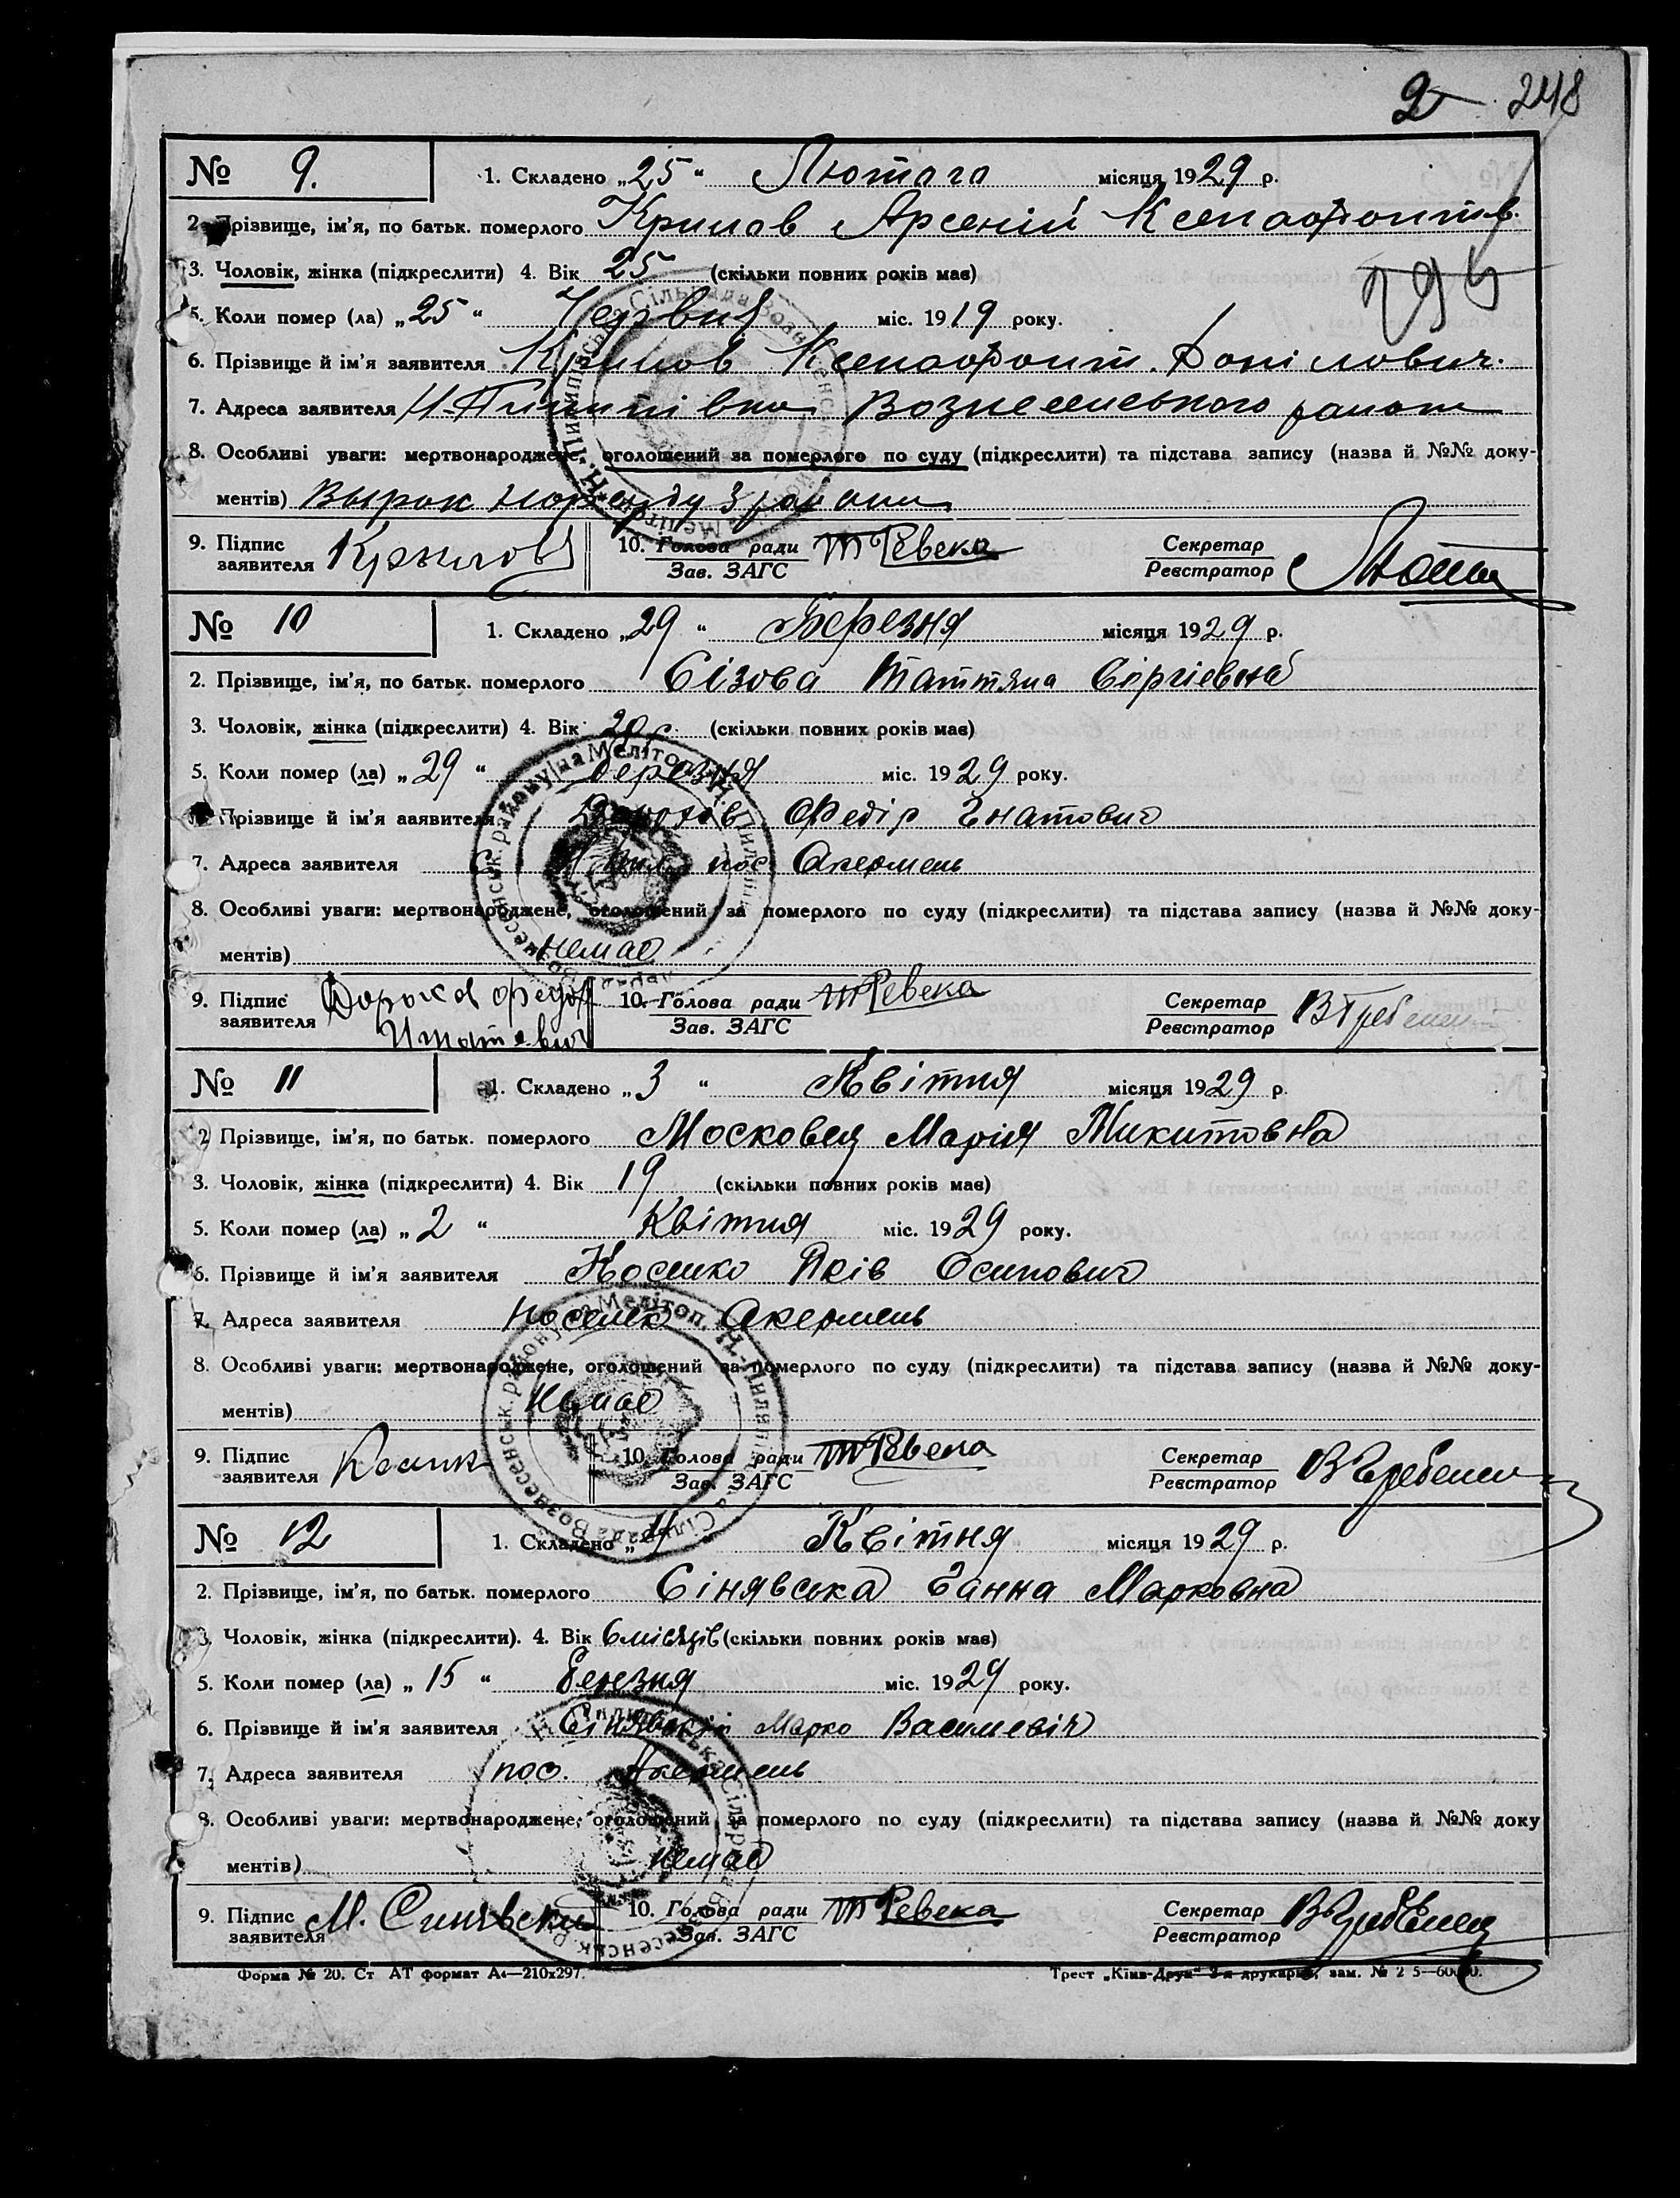 248
№ 9. 1. Складено „25“ Лютого місяця 1929 р.
2. Прізвище, ім'я, по батьк. померлого Крилов Арсеній Ксенофонтів.
3. Чоловік, жінка (підкреслити) 4. Вік 25 (скільки повних років має)
5. Коли помер (ла) „25“ Червня міс. 1919 року.
6. Прізвище й ім'я заявителя Крилов Ксенофонт. Данілович.
7. Адреса заявителя Н-Пилипівка Вознесенського району
8. Особливі уваги: мертвонароджене, оголошений за померлого по суду (підкреслити) та підстава запису (назва й №№ доку-
ментів) Вырок нарсуду 3 району
9. Підпис заявителя Крылов 10. Голова ради Зав. ЗАГС Ревека Секретар Реєстратор
№ 10 1. Складено „29“ Березня місяця 1929 р.
2. Прізвище, ім'я, по батьк. померлого Сізова Таттяна Сергієвна
3. Чоловік, жінка (підкреслити) 4. Вік 20 (скільки повних років має)
5. Коли помер (ла) „29“ березня міс. 1929 року.
6. Прізвище й ім'я заявителя Федір Гнатович
7. Адреса заявителя пос Акермень
8. Особливі уваги: мертвонароджене, оголошений за померлого по суду (підкреслити) та підстава запису (назва й №№ доку-
ментів) немає
9. Підпис заявителя 10. Голова ради Зав. ЗАГС Ревека Секретар Реєстратор В Гребенец
№ 11 1. Складено „3“ Квітня місяця 1929 р.
2. Прізвище, ім'я, по батьк. померлого Московец Марія Микитовна
3. Чоловік, жінка (підкреслити) 4. Вік 19 (скільки повних років має)
5. Коли помер (ла) „2“ Квітня міс. 1929 року.
6. Прізвище й ім'я заявителя Носико Яків Осипович
7. Адреса заявителя поселок Акермень
8. Особливі уваги: мертвонароджене, оголошений за померлого по суду (підкреслити) та підстава запису (назва й №№ доку-
ментів) Немає
9. Підпис заявителя 10. Голова ради Зав. ЗАГС Ревека Секретар Реєстратор В Гребенец
№ 12 1. Складено „4 Квітня місяця 1929 р.
2. Прізвище, ім'я, по батьк. померлого Сінявська Ганна Марковна
3. Чоловік, жінка (підкреслити). 4. Вік 6 місяців (скільки повних років має)
5. Коли помер (ла) „15“ Березня міс. 1929 року.
6. Прізвище й ім'я заявителя Сінявський Марко Васильевіч
7. Адреса заявителя пос. Акермень
8. Особливі уваги: мертвонароджене, оголошений за померлого по суду (підкреслити) та підстава запису (назва й №№ доку
ментів) немає
9. Підпис заявителя М. Синявский 10. Голова ради Зав. ЗАГС Ревека Секретар Реєстратор В Гребенец
Форма № 20. Ст АТ формат А4—210x297. Трест „Київ-Друк“ 3-я друкарня, зам. №